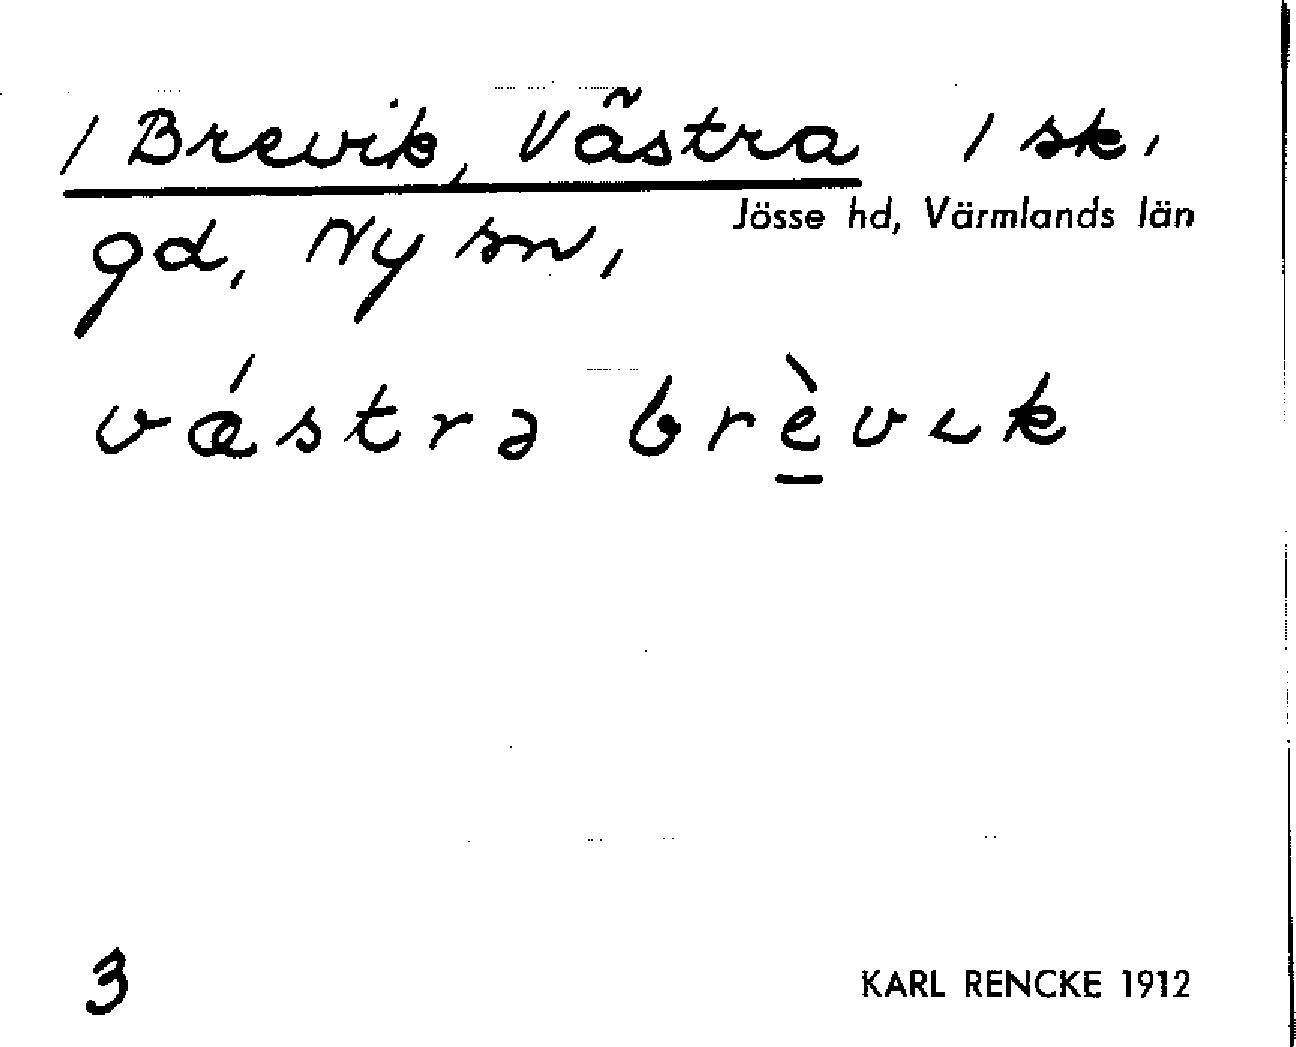 / Brevik, Västra / sk.
Jösse hd, Värmlands län
gd, Ny sn,
vǽstrə brè̱vɩk
3
KARL RENCKE 1912